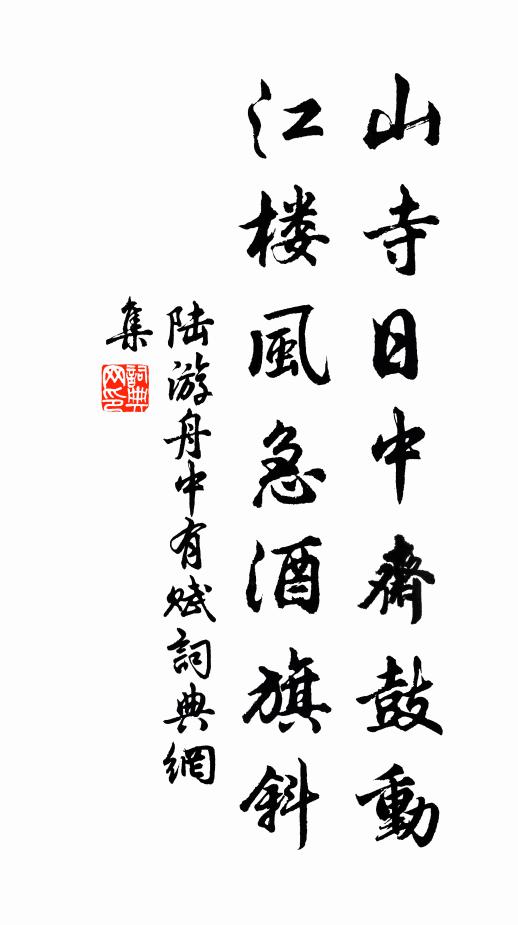 山寺日中齋鼓動
江楼風急酒旗斜
陆游舟中有赋詞典網
集
詞典
网印